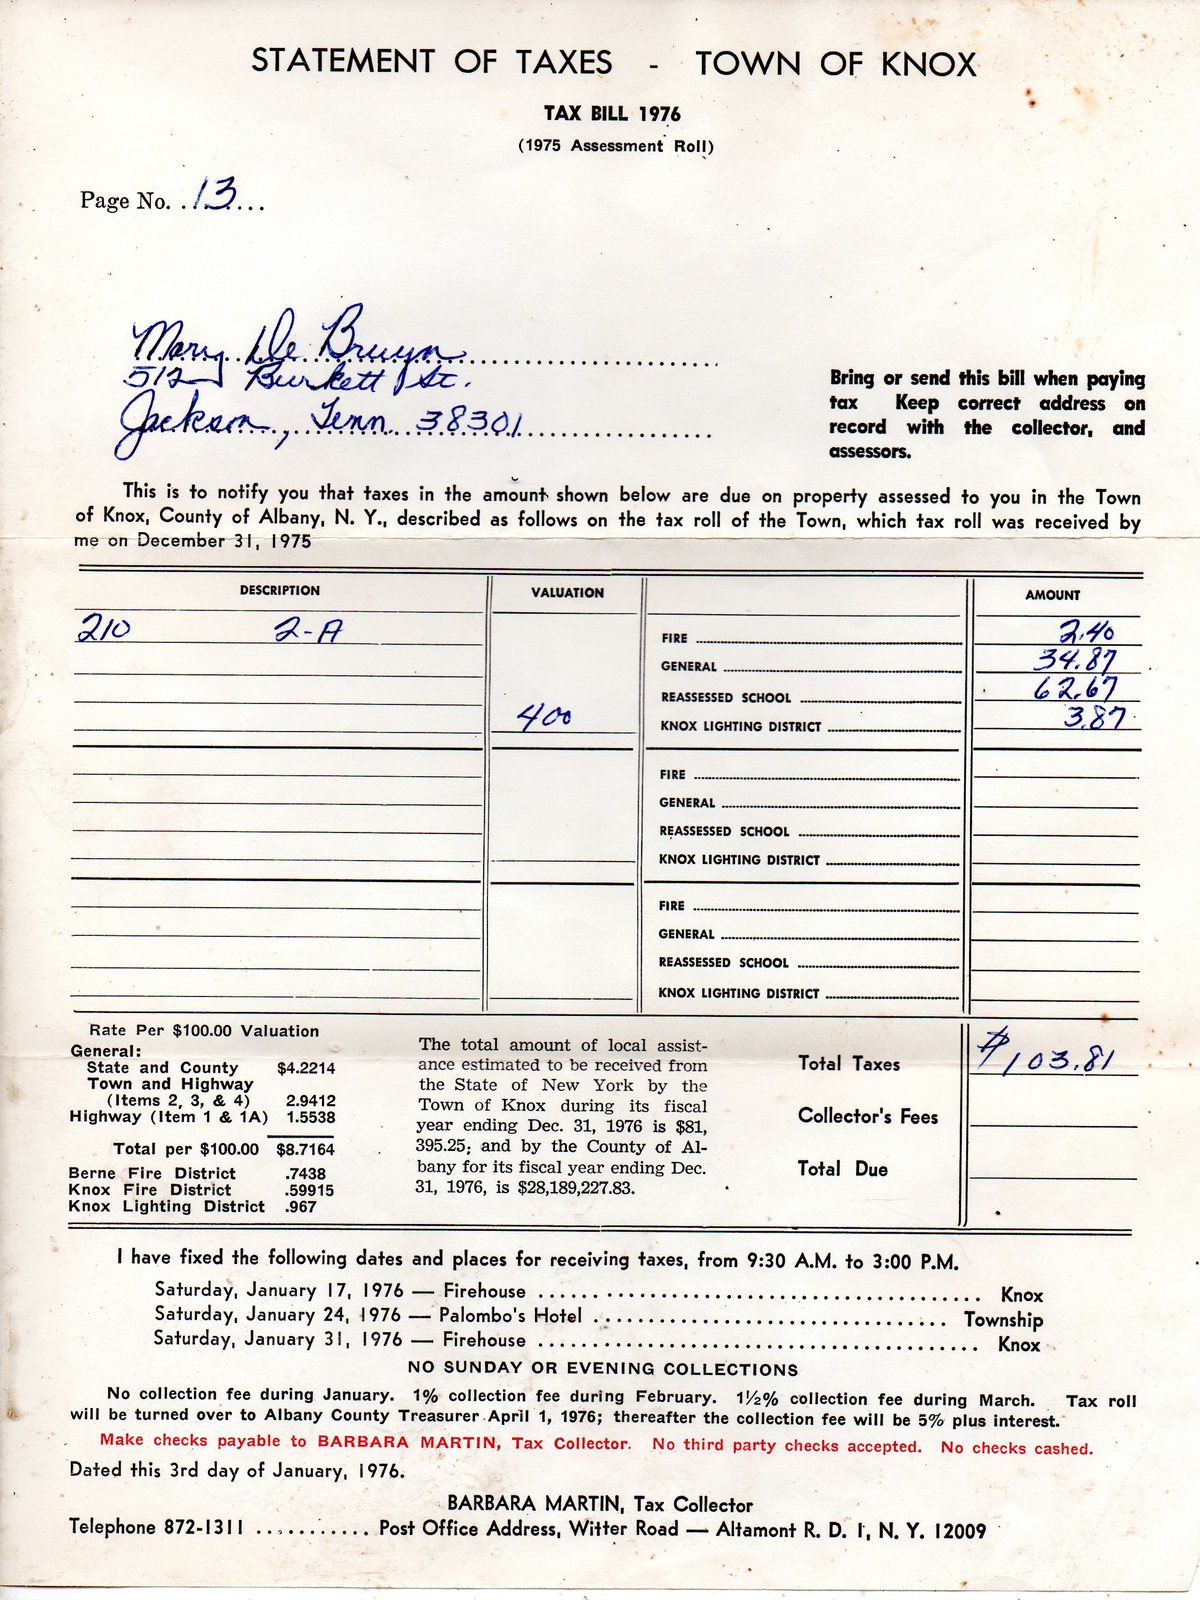 STATEMENT OF TAXES - TOWN OF KNOX
TAX BILL 1976
(1975 Assessment Roll)
Page No. ..13....
Mary De Bruyn
512 Burkett St.
Jackson, Tenn 38301
Bring or send this bill when paying
tax Keep correct address on
record with the collector, and
assessors.
This is to notify you that taxes in the amount shown below are due on property assessed to you in the Town
of Knox, County of Albany, N. Y., described as follows on the tax roll of the Town, which tax roll was received by
me on December 31, 1975
DESCRIPTION VALUATION AMOUNT
210 2-A FIRE 2.40
GENERAL 34.87
REASSESSED SCHOOL 62.67
400 KNOX LIGHTING DISTRICT 3.87
FIRE
GENERAL
REASSESSED SCHOOL
KNOX LIGHTING DISTRICT
FIRE
GENERAL
REASSESSED SCHOOL
KNOX LIGHTING DISTRICT
Rate Per $100.00 Valuation
General:
State and County $4.2214
Town and Highway
(Items 2, 3, & 4) 2.9412
Highway (Item 1 & 1A) 1.5538
Total per $100.00 $8.7164
Berne Fire District .7438
Knox Fire District .59915
Knox Lighting District .967
The total amount of local assist-
ance estimated to be received from
the State of New York by the
Town of Knox during its fiscal
year ending Dec. 31, 1976 is $81,
395.25; and by the County of Al-
bany for its fiscal year ending Dec.
31, 1976, is $28,189,227.83.
Total Taxes $103.81
Collector's Fees
Total Due
I have fixed the following dates and places for receiving taxes, from 9:30 A.M. to 3:00 P.M.
Saturday, January 17, 1976 — Firehouse ........ Knox
Saturday, January 24, 1976 — Palombo's Hotel ........ Township
Saturday, January 31, 1976 — Firehouse ........ Knox
NO SUNDAY OR EVENING COLLECTIONS
No collection fee during January. 1% collection fee during February. 1½% collection fee during March. Tax roll
will be turned over to Albany County Treasurer April 1, 1976; thereafter the collection fee will be 5% plus interest.
Make checks payable to BARBARA MARTIN, Tax Collector. No third party checks accepted. No checks cashed.
Dated this 3rd day of January, 1976.
BARBARA MARTIN, Tax Collector
Telephone 872-1311 ........... Post Office Address, Witter Road — Altamont R. D. 1, N. Y. 12009